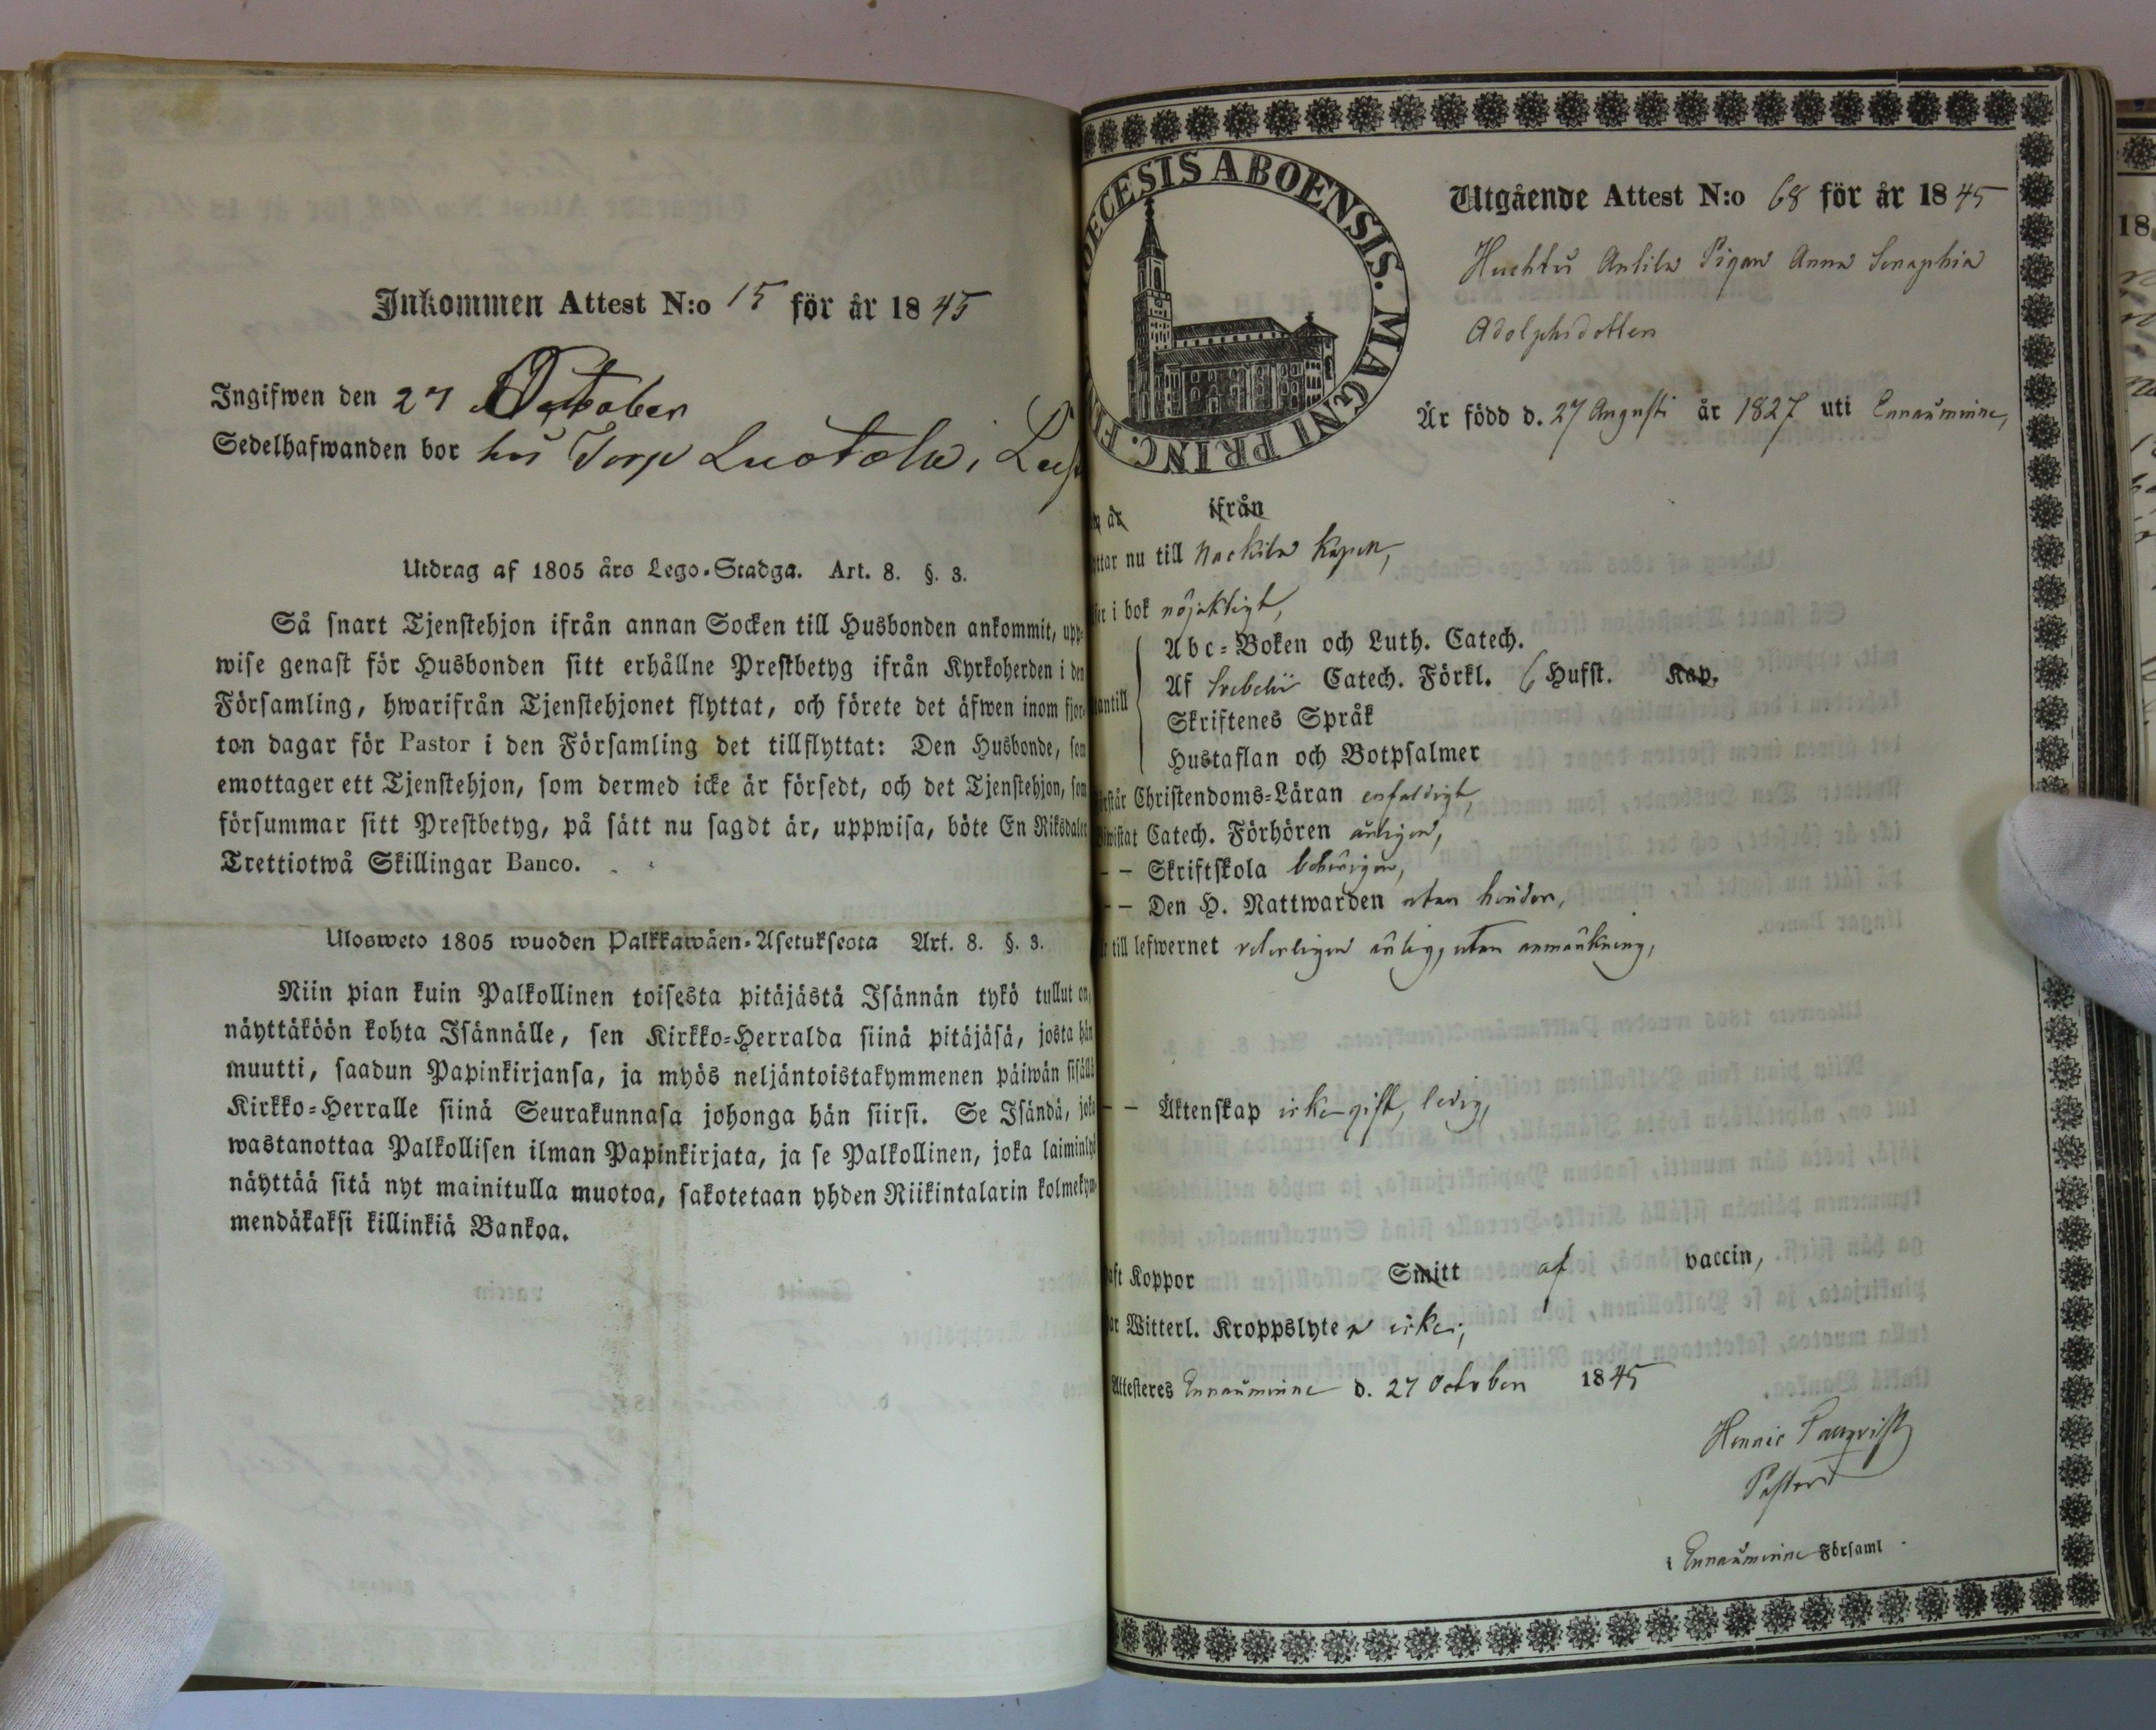 Inkommen Attest N:o 15 för år 1845
Ingifwen den 27 October
Sedelhafwanden bor hos Torp Luotola i
Utdrag af 1805 års Lego-Stadga. Art. 8. §. 3.
Så snart Tjenstehjon ifrån annan Socken till Husbonden ankommit, upp-
wise genast för Husbonden sitt erhållne Prestbetyg ifrån Kyrkoherden i den
Församling, hwarifrån Tjenstehjonet flyttat, och förete det äfwen inom fjor-
ton dagar för Pastor i den Församling det tillflyttat: Den Husbonde, som
emottager ett Tjenstehjon, som dermed icke är försedt, och det Tjenstehjon, som
försummar sitt Prestbetyg, på sätt nu sagdt är, uppwisa, böte En Riksdaler
Trettiotwå Skillingar Banco.
Ulosweto 1805 wuoden Palkkawäen-Asetuksesta Art. 8. §. 3.
Niin pian kuin Palkollinen toisesta pitäjästä Isännän tykö tullut on,
näyttäköön kohta Isännälle, sen Kirkko-Herralda siinä pitäjäsä, josta hän
muutti, saadun Papinkirjansa, ja myös neljäntoistakymmenen päiwän sisällä
Kirkko-Herralle siinä Seurakunnasa johonga hän siirsi. Se Isändä, joka
wastanottaa Palkollisen ilman Papinkirjata, ja se Palkollinen, joka laiminlyö
näyttää sitä nyt mainitulla muotoa, sakotetaan yhden Riikintalarin kolmekym-
mendäkaksi killinkiä Bankoa.
DIOECESIS ABOENSIS. MAGNI PRINC. F
Utgående Attest N:o 68 för år 1845
Antila Pigan Anna Seraphia
Adolphsdotter
Är född d. 27 Augusti år 1827 uti Ennäuminne,
år ifrån
ttar nu till Nackila Kapell,
i bok nöjaktigt,
Abc-Boken och Luth. Catech.
Af Svebelii Catech. Förkl. 6 Hufst. Kap.
antill
Skriftenes Språk
Hustaflan och Botpsalmer
rstår Christendoms-Läran enfaldigt,
iwistat Catech. Förhören årligen,
– – Skriftskola behörigen,
– – Den H. Nattwarden utan hinder,
till lefwernet veterligen ärlig, utan anmärkning,
– – Äktenskap icke gift, ledig,
aft Koppor Smitt af vaccin,
ar Witterl. Kroppslyten icke,
Attesteres Ennäuminne d. 27 October 1845
Pastor
i Ennäuminne Församl
18